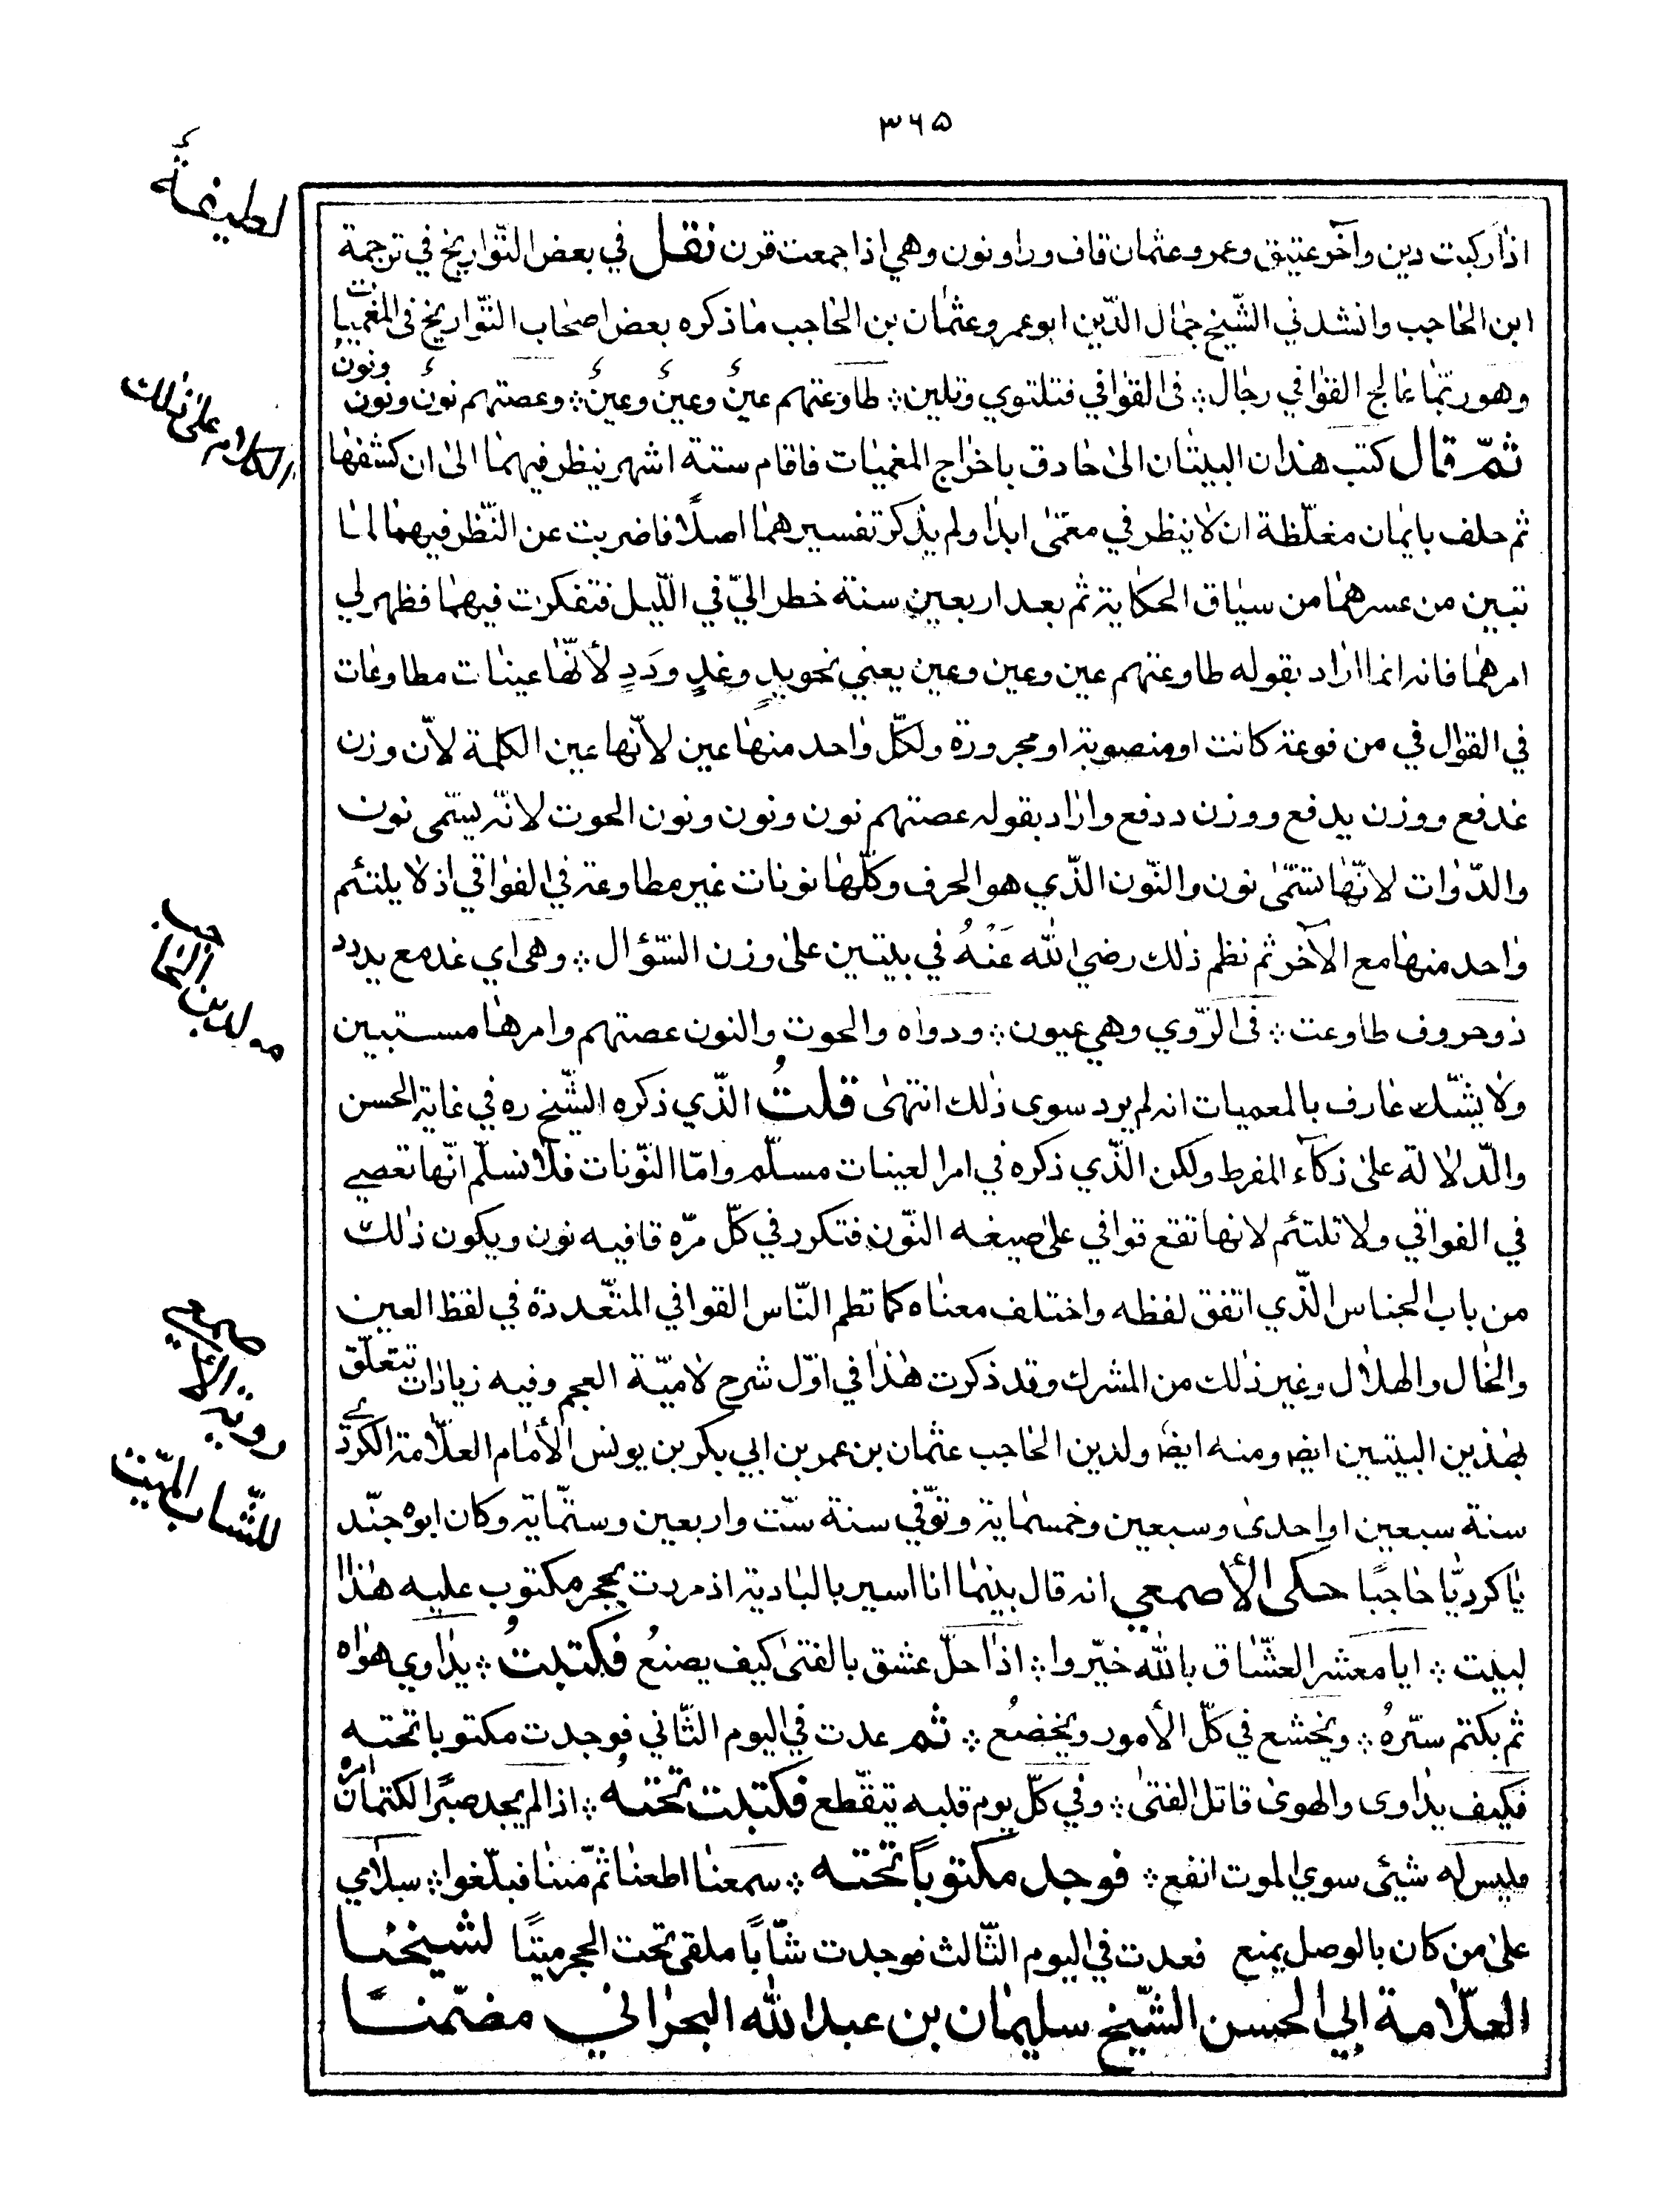 ۳۶۵
لطيفةٌ
اذا ركبت دين وآخر عتيق وعمر وعثمان قاف ورا ونون وهي اذا جمعت قرن نقل في بعض التّواريخ في ترجمة
ابن الحاجب وانشدني الشّيخ جمال الدّين ابو عمرو عثمان بن الحاجب ما ذكره بعض اصحاب التّواريخ فى المغميات
وهو ربّما عالج القوافي رجال ؞ فى القوافي فتلتوي وتلين ؞ طاوعتهم عينٌ وعينٌ وعينٌ ؞ وعصتهم نونٌ ونون ونونٌ
الكلام على ذلك
ثمّ قال كتب هذان البيتان الى حادق باخراج المغميات فاقام ستة اشهر ينظر فيهما الى ان كشفها
ثم حلف بايمان مغلّظة ان لا ينظر في معمّى ابدا ولم يذكر تفسيرهما اصلًا فاضربت عن النّظر فيهما لما
تبين من عسرهما من سياق الحكاية ثم بعد اربعين سنة خطر اليّ في اللّيل فتفكرت فيهما فظهر لي
امرهما فانه انما اراد بقوله طاوعتهم عين وعين وعين يعني نحو يدٍ وغدٍ ودَدٍ لأنّها عينات مطاوعات
في القوال في من فوعة كانت او منصوبة او مجرورة ولكلّ واحد منها عين لأنها عين الكلمة لأنّ وزن
غد فع ووزن يد فع ووزن دد فع واراد بقوله عصتهم نون ونون ونون الحوت لانّه يسمّى نون
والدّوات لانّها تسمّى نون والنّون الذّي هو الحرف وكلّها نونات غير مطاوعة في القوافي اذ لا يلتئم
واحد منها مع الآخر ثم نظم ذلك رضي الله عَنْهُ في بيتين على وزن السّؤال ؞ وهى اي غد مع يد دد
مولد ابن الحاجب
ذو حروف طاوعت ؞ فى الرّوي وهي عيون ؞ ودواه والحوت والنون عصتهم وامرها مستبين
ولا يشّك عارف بالمعميات انه لم يرد سوى ذلك انتهى قلتُ الذّي ذكره الشّيخ ره في غاية الحسن
والدّلالة على ذكآء المفرط ولكن الذّي ذكره في امر العينات مسلّم وامّا النّونات فلا نسلّم انّها تعصي
في القوافي ولا تلتئم لانها تقع قوافي على صيغه النّون فتكرر في كلّ مرّه قافيه نون ويكون ذلك
من باب الجناس الذّي اتفق لفظه واختلف معناه كما تطم النّاس القوافي المتعّددة في لفظ العين
والخال والهلال وغير ذلك من المشرك وقد ذكرت هذا في اوّل شرح لاميّة العجم وفيه زيادات تتعلّق
بهذين البيتين ايض ومنه ايض ولد بن الحاجب عثمان بن عمر بن ابي بكر بن يونس الأمام العلّامة الكرديّ
سنة سبعين او احدى وسبعين وخمسماية وتوّفي سنة ستّ واربعين وستّماية وكان ابوه جنّد
رؤية الأصمعي للشّاب الميّت
يا كرديّا حاجبًا حكى الأصمعي انه قال بينما انا اسير بالبادية اذ مررت بحجر مكتوب عليه هذا
لبيت ؞ ايا معشر العشّاق بالله خبّروا ؞ اذا حلّ عشق بالفتى كيف يصنعُ فكتبتُ ؞ يداوي هواه
ثم يكتم سرّهُ ؞ ويخشع في كلّ الأمور ويخضعُ ؞ ثم عدت في اليوم الثّاني فوجدت مكتوبا تحته
فكيف يداوى والهوى قاتل الفتى ؞ وفي كلّ يوم قلبه يتقّطع فكتبت تحتهُ ؞ اذا لم يجد صبرًا لكتمان امره
فليس له شيئى سوي الموت انفع ؞ فوجد مكتوبًا تحته ؞ سمعنا اطعنا ثمّ متنا فبلّغوا ؞ سلامي
على من كان بالوصل يمنع فعدت في اليوم الثّالث فوجدت شابًّا ملقى تحت الحجر ميتًا لشيخنا
العلّامة ابي الحسن الشّيخ سليمان بن عبد الله البحراني مضمّنًا